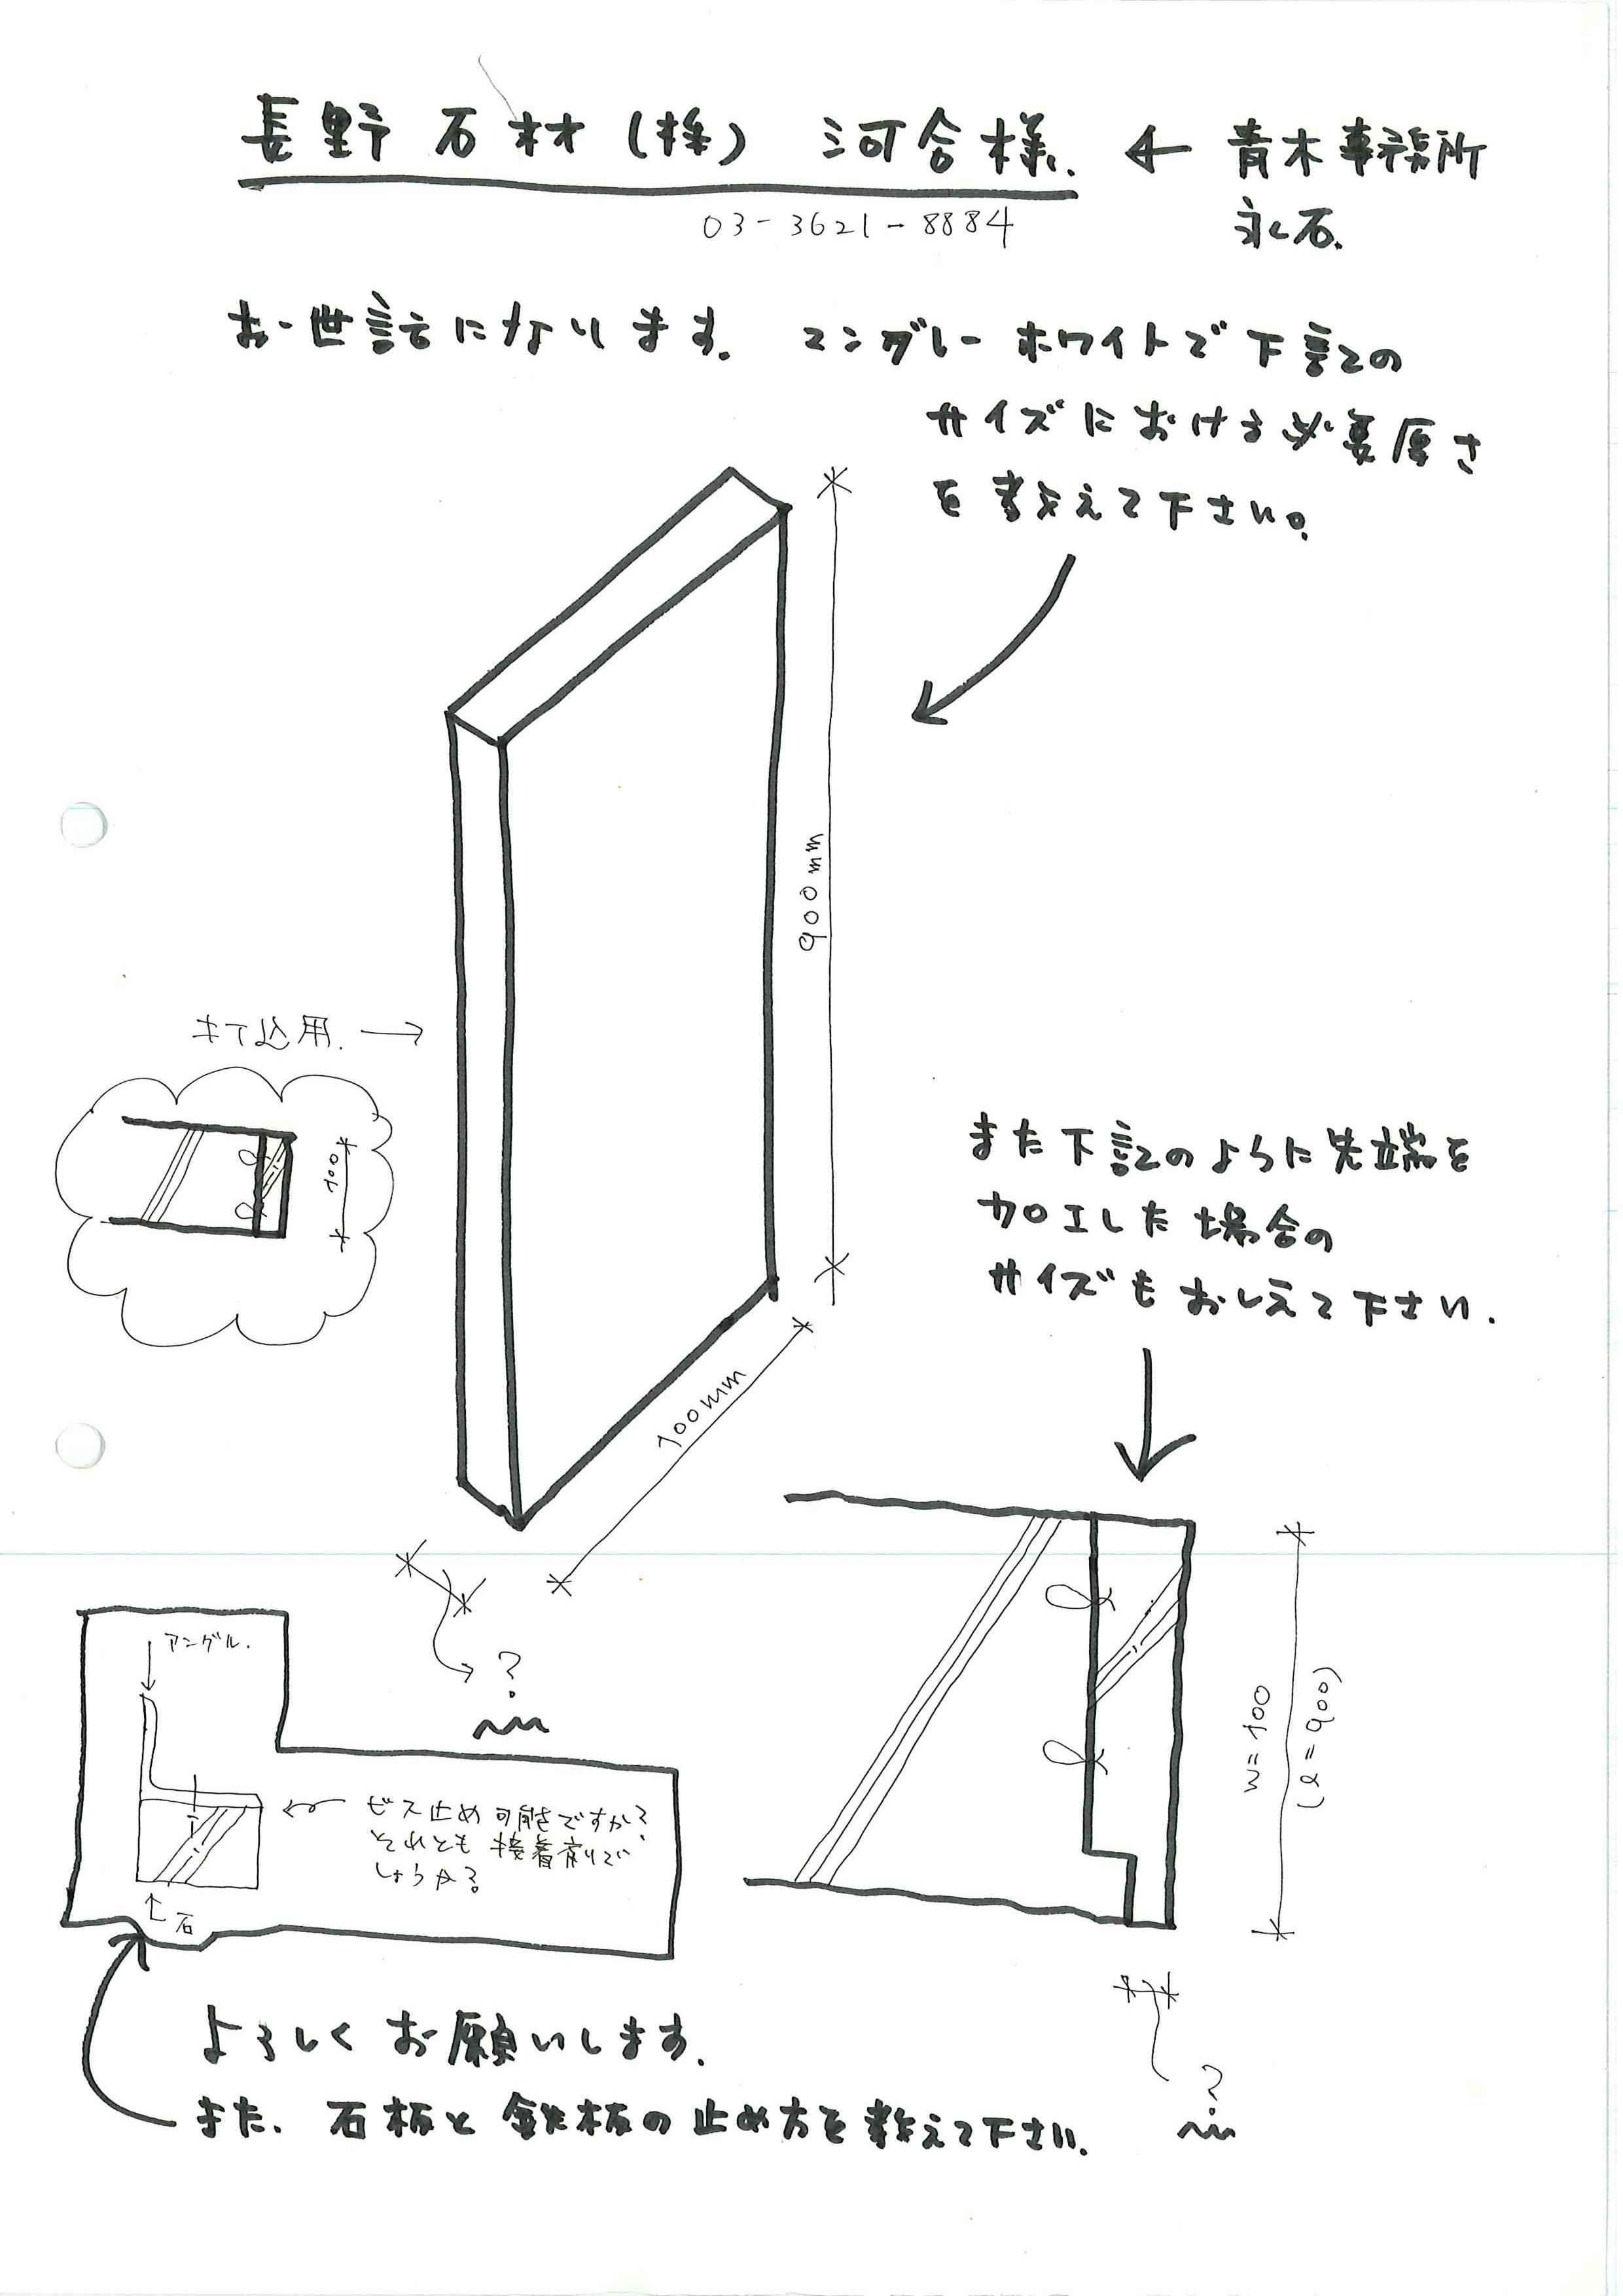 長野石材(株) 河合様. ← 青木事務所
永石.
03-3621-8884
お世話になります. マングレーホワイトで下記の
サイズにおける必要厚さ
を教えて下さい。
900mm
打込用. →
100
また下記のように先端を
加工した場合の
サイズもおしえて下さい.
100mm
?
アングル.
ビス止め可能ですか?
それとも接着剤で
しょうか?
石
w=100
(ℓ=900)
?
よろしくお願いします.
また. 石板と鉄板の止め方を教えて下さい.